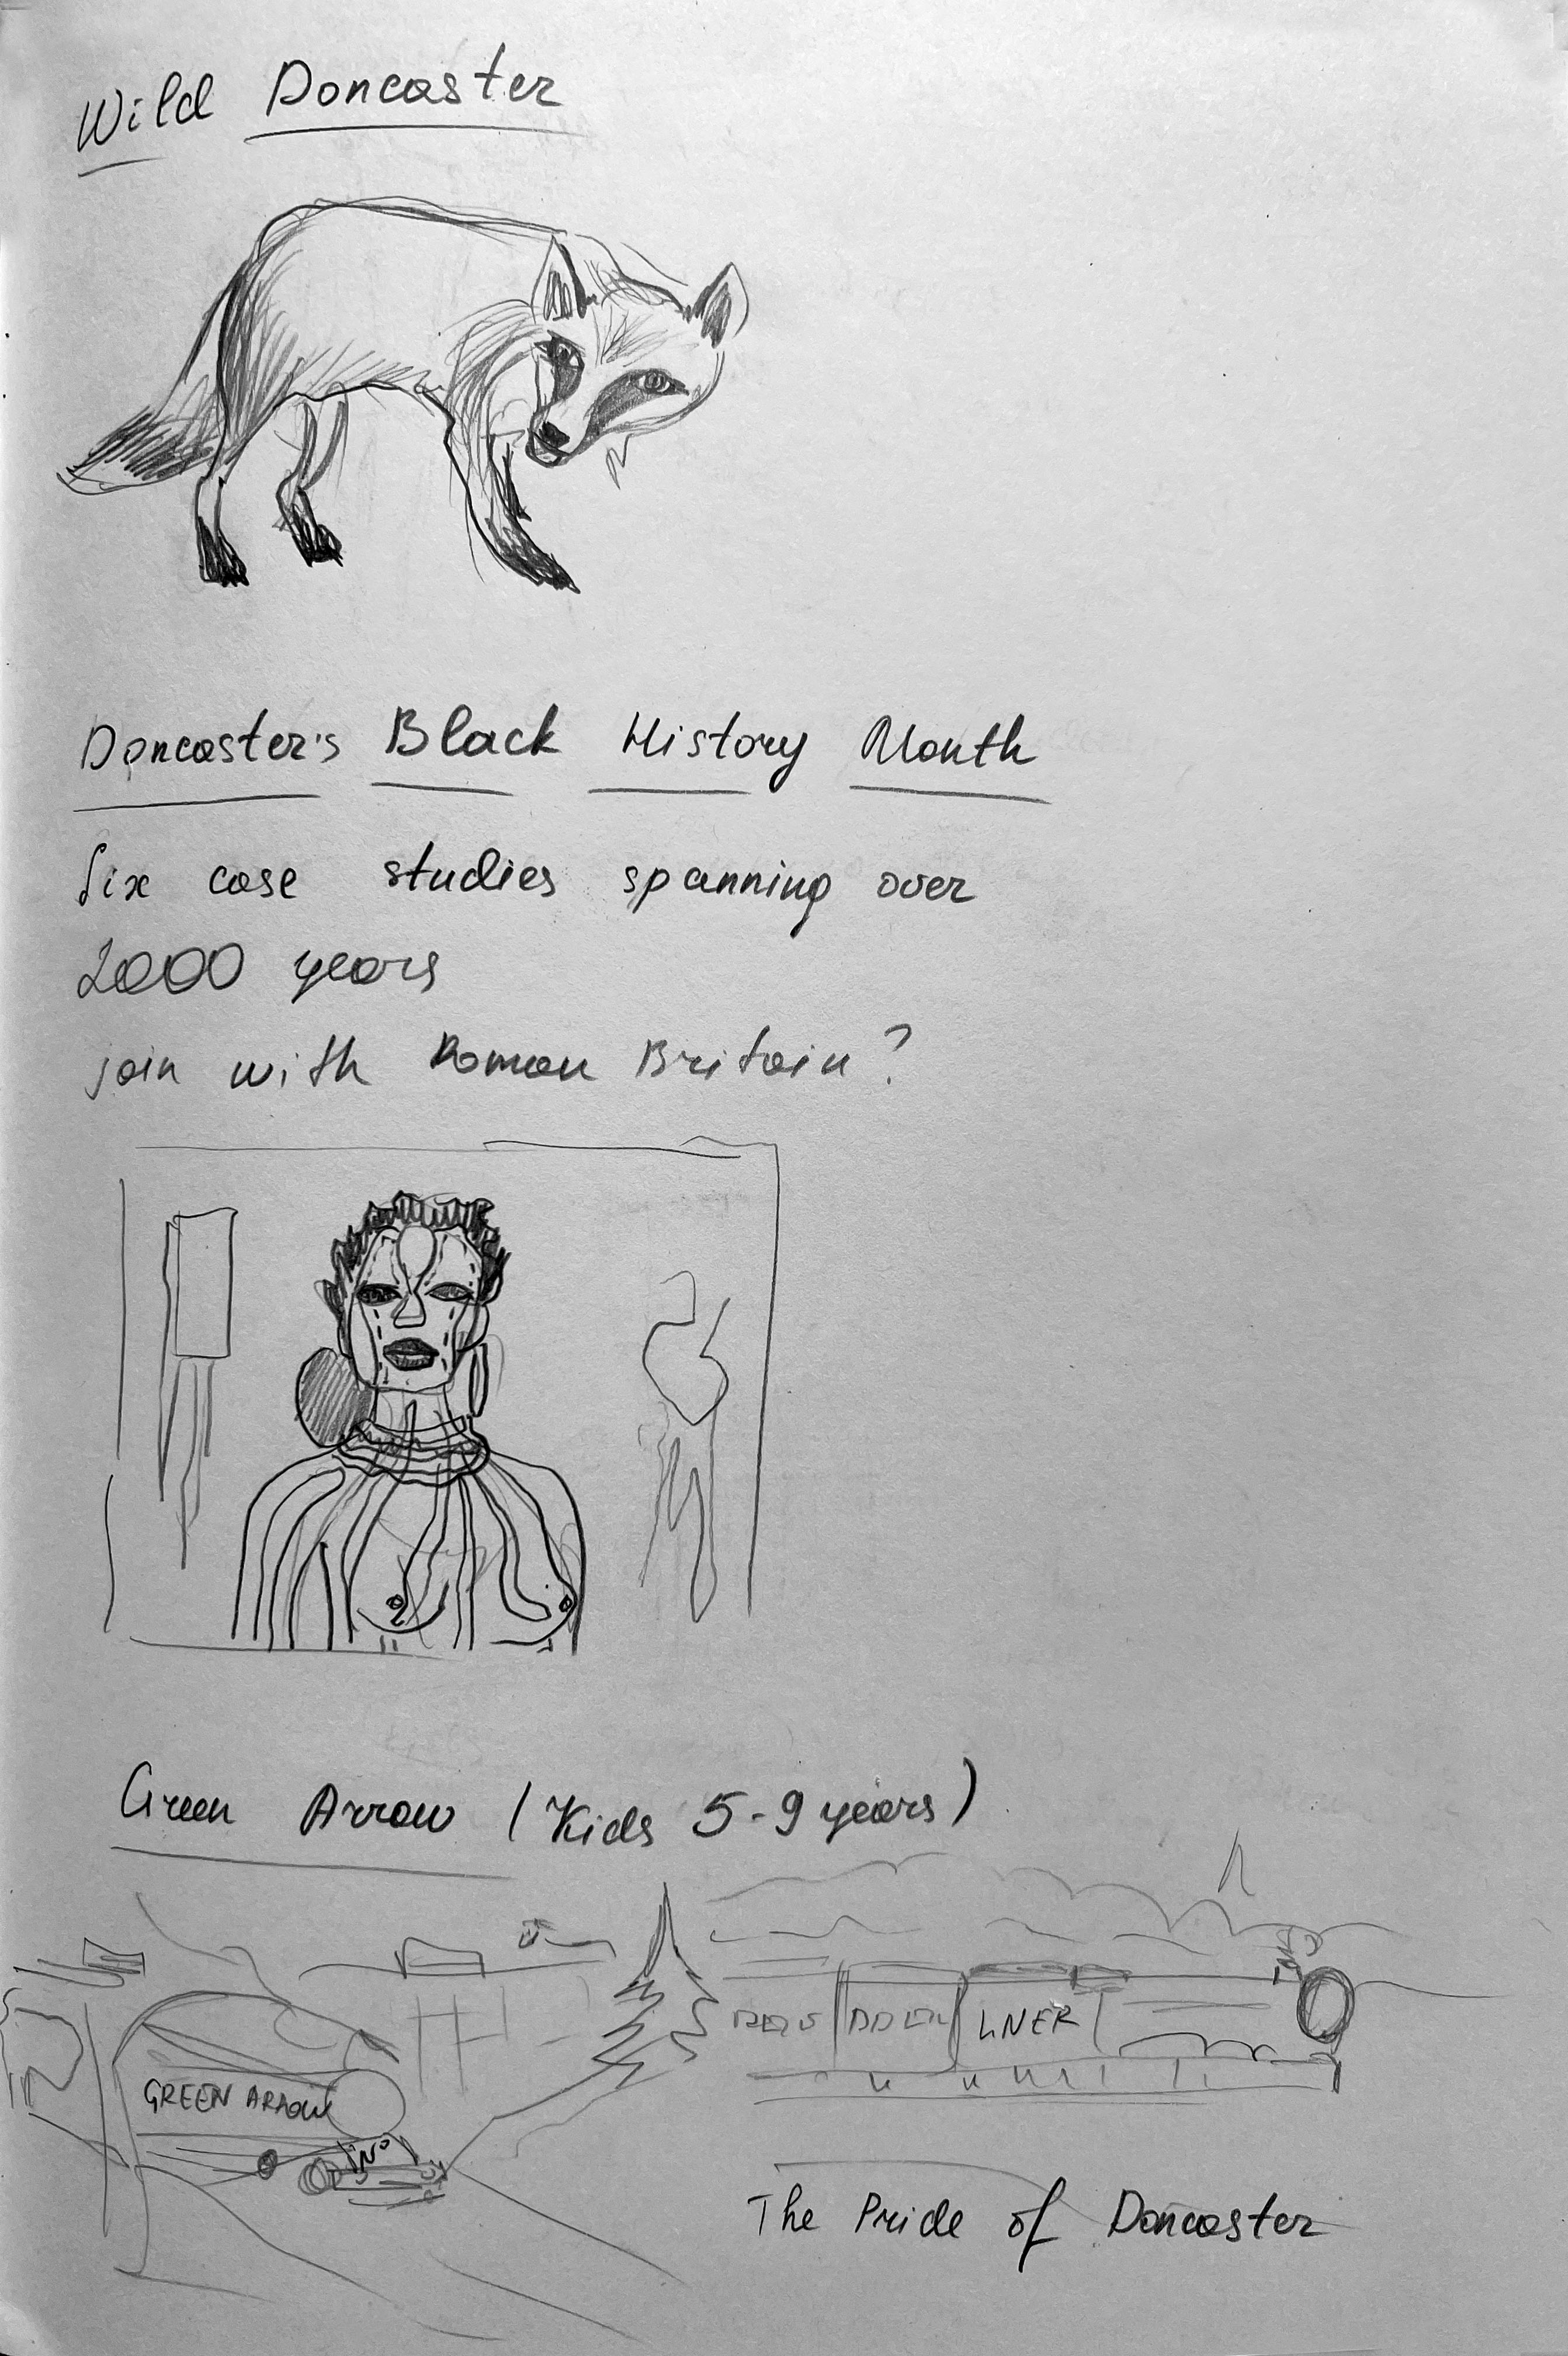 Wild Doncaster
Doncaster's Black History Month
Six case studies spanning over
2000 years
join with Roman Britain?
Green Arrow (Kids 5-9 years)
GREEN ARROW
LINER
The Pride of Doncaster